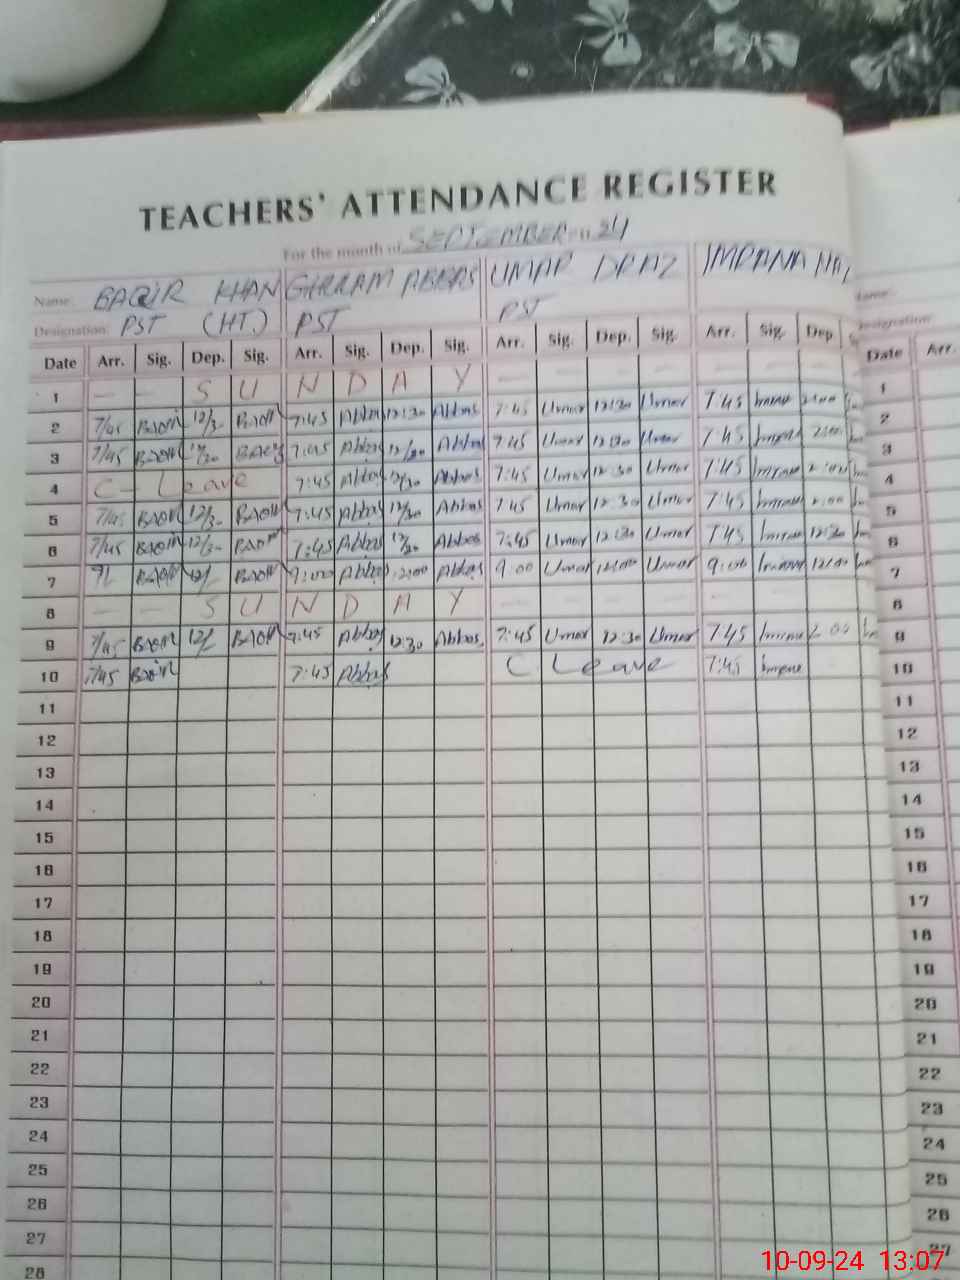 TEACHERS' ATTENDANCE REGISTER
For the month of SEPTEMBER 24
Name: BAQIR KHAN GHULAM ABBAS UMAR DRAZ IMRANA
Designation: PST (HT) PST PST
Date Arr. Sig. Dep. Sig. Arr. Sig. Dep. Sig. Arr. Sig. Dep. Sig. Arr. Sig. Dep Date Arr.
1 — — S U N D A Y — — — — — — — 1
2 7/45 12/30 7:45 Abbas 12:30 Abbas 7:45 Umar 12:30 Umar 7:45 2:00 2
3 7/45 12/30 7:45 Abbas 12/30 Abbas 7:45 Umar 12:30 Umar 7:45 2:00 3
4 C - Leave 7:45 Abbas 12/30 Abbas 7:45 Umar 12:30 Umar 7:45 2:00 4
5 7/45 12/30 7:45 Abbas 12/30 Abbas 7:45 Umar 12:30 Umar 7:45 2:00 5
6 7/45 12/30 7:45 Abbas 12/30 Abbas 7:45 Umar 12:30 Umar 7:45 12:30 6
7 9/ 12/ 9:00 Abbas 12:00 Abbas 9:00 Umar 12:00 Umar 9:00 12:00 7
8 — — S U N D A Y — — — — — — — 8
9 7/45 12/ 7:45 Abbas 12:30 Abbas 7:45 Umar 12:30 Umar 7:45 2:00 9
10 7/45 7:45 Abbas C Leave 7:45 10
11 11
12 12
13 13
14 14
15 15
16 16
17 17
18 18
19 19
20 20
21 21
22 22
23 23
24 24
25 25
26 26
27 27
28
10-09-24 13:07